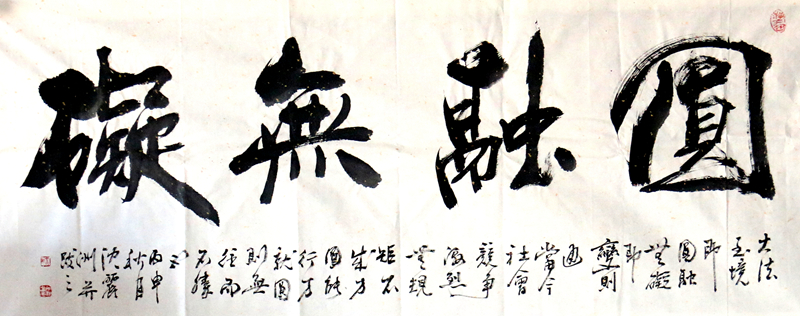 圓融無礙
大法
至境
即
圓融
無礙
即
變則
通
當今
社會
競爭
激烈
無規
矩不
成方
圓能
行方
就圓
則無
往而
不勝
丙申
秋月
沈麗
洲并
跋之